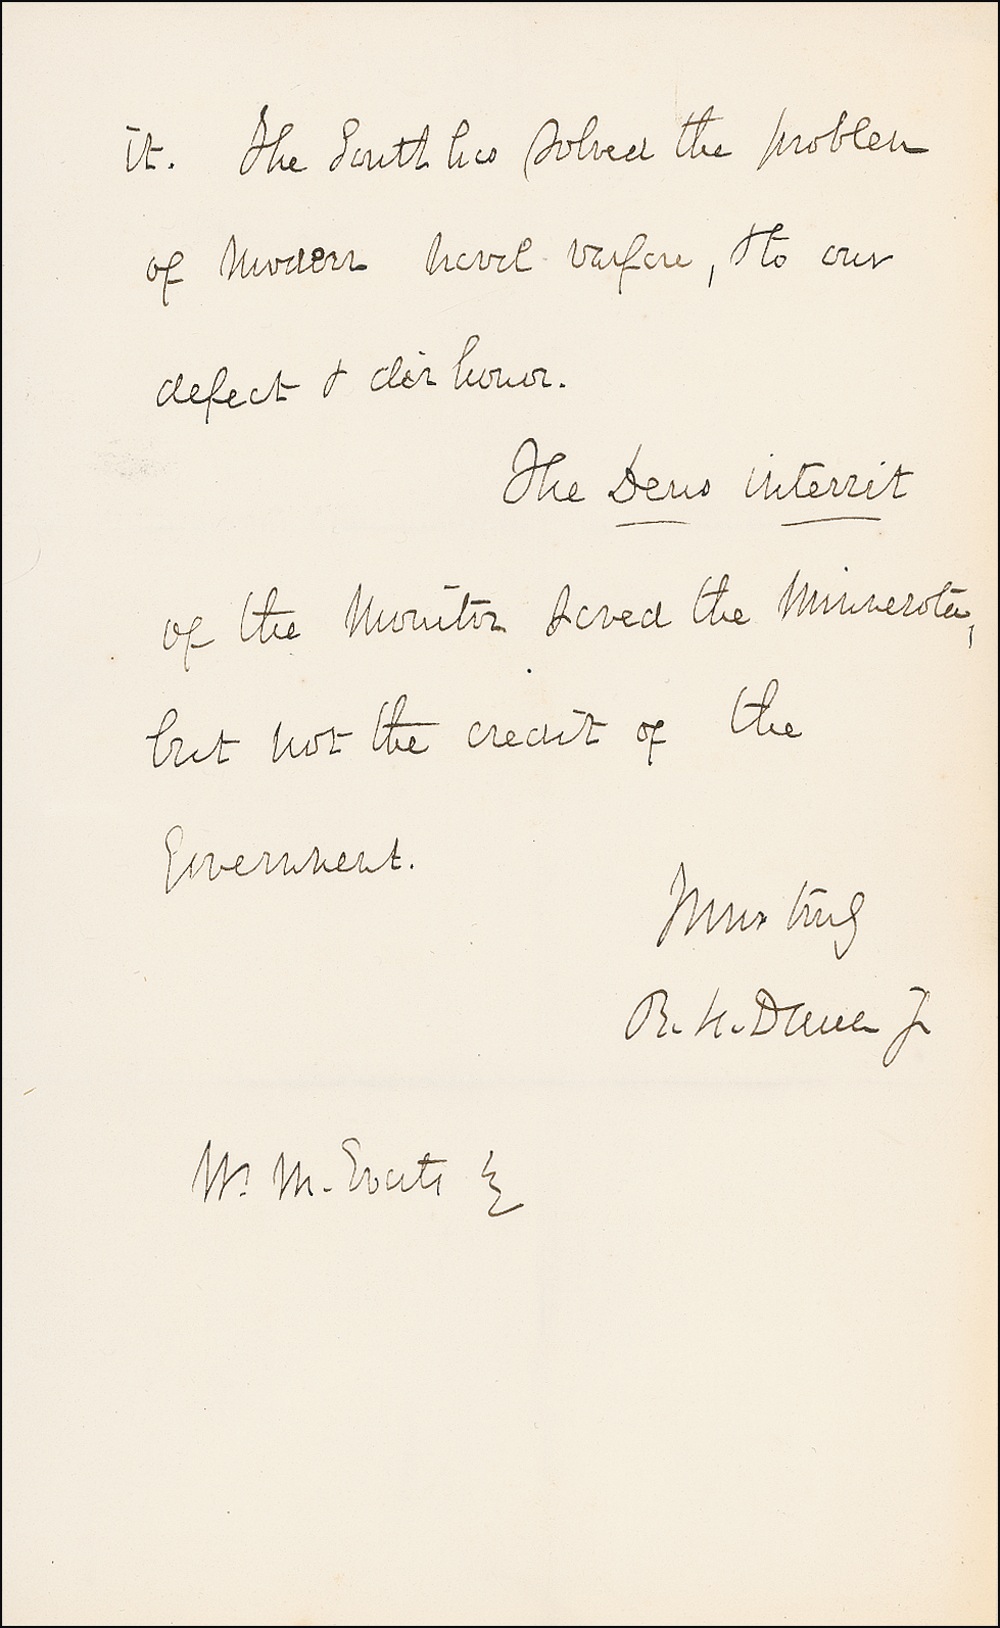 it. The South has solved the problem
of modern naval warfare, & to our
defeat & dishonor.
The Deus interrit
of the Monitor saved the Minnesota,
but not the credit of the
Government.
Yours truly
R. H. Dana Jr
W. M. Evarts